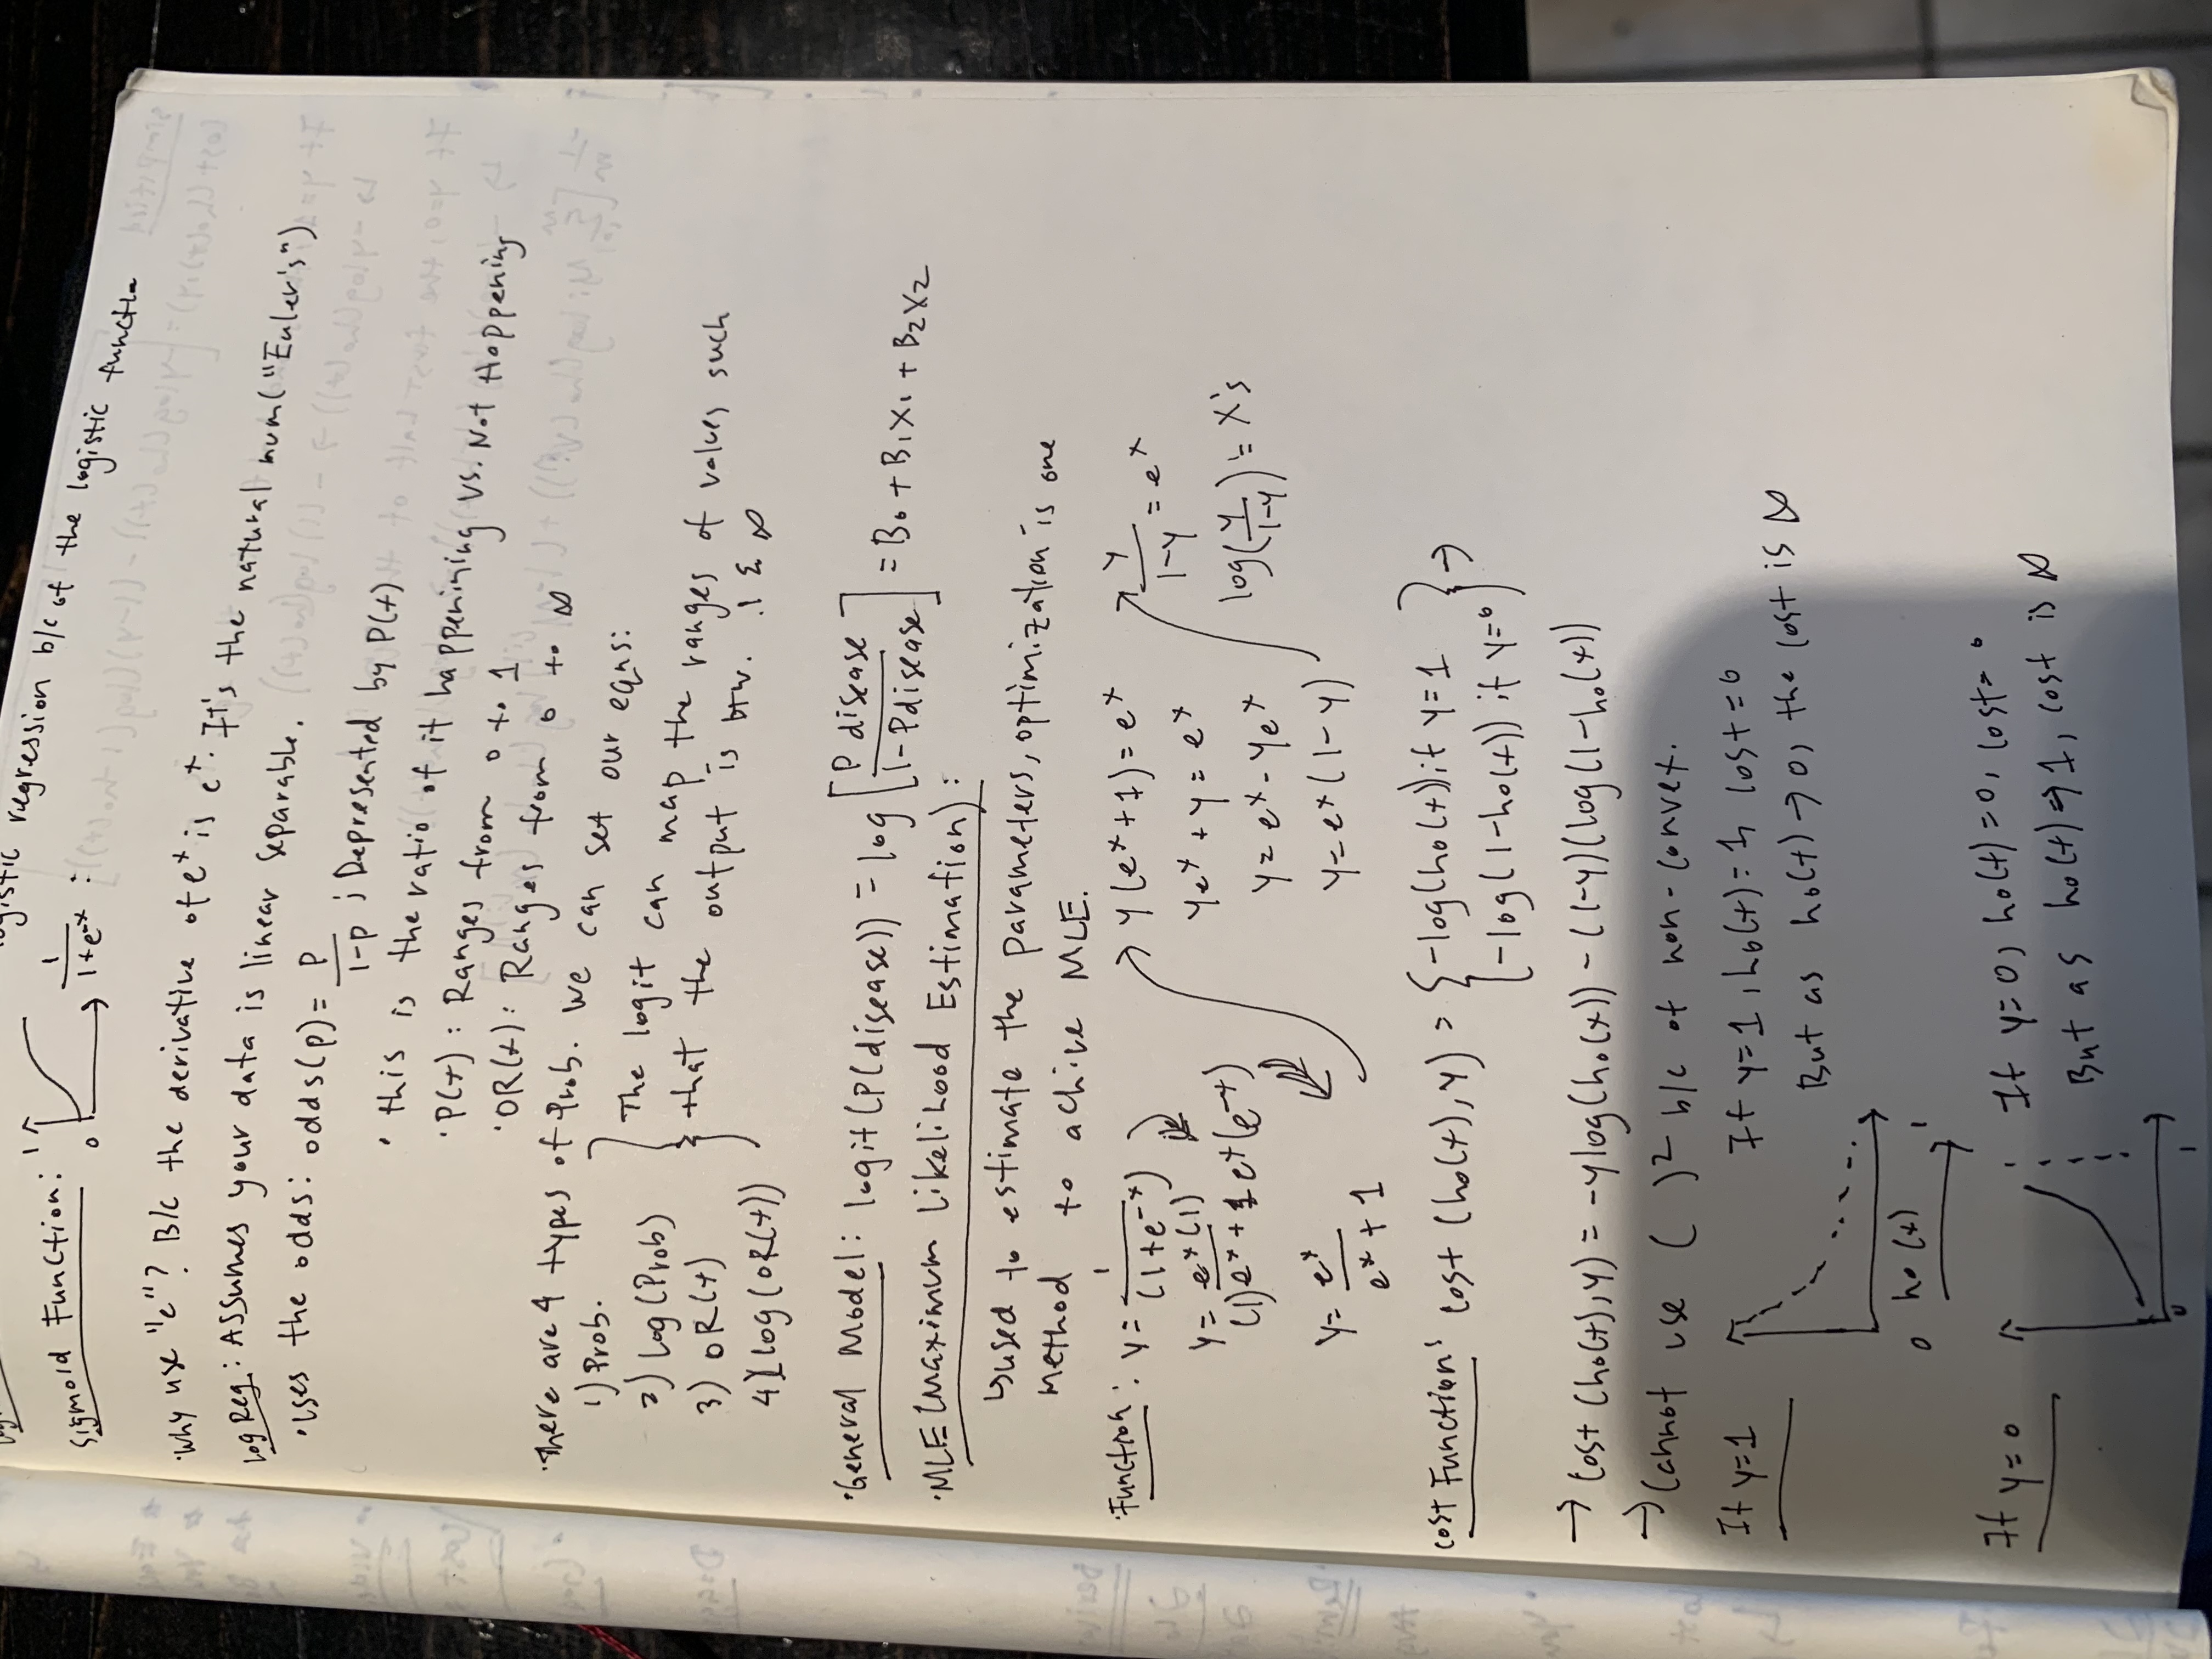 logistic regression b/c of the logistic functio
Sigmoid Function: 1 0 1/(1+e^-x) :
·Why use "e"? B/c the derivative of e^x is e^x. It's the natural num("Euler's")
Log Reg: Assumes your data is linear separable.
·Uses the odds: odds(p) = P/(1-p) ; Depresented by P(x)
· this is the ratio of it happenining vs. Not Happening
·P(x): Ranges from 0 to 1
·OR(x): Ranges from 0 to ∞
·There are 4 types of Prob. we can set our eqns:
1) Prob.
2) Log(Prob)
3) OR(x)
4) log(OR(x))
The logit can map the ranges of values such
that the output is btw. .1 & ∞
·General Model: logit(P(disease)) = log[P disease/(1-Pdisease)] = B₀ + B₁X₁ + B₂X₂
·MLE (Maximum Likelihood Estimation):
↳used to estimate the parameters, optimization is one
method to achive MLE.
·Function: y = 1/(1+e^-x)
y = e^x(1)/(1)e^x + 1 e^x(e^-x)
y = e^x/(e^x + 1)
y(e^x+1) = e^x
ye^x + y = e^x
y = e^x - ye^x
y = e^x(1-y)
y/(1-y) = e^x
log(y/(1-y)) = X's
Cost Function: cost (h₀(x), y) = {-log(h₀(x)) if y=1
{-log(1-h₀(x)) if y=0} →
→ Cost (h₀(x), y) = -ylog(h₀(x)) - (1-y)(log(1-h₀(x))
→ Cannot use ( )² b/c of non-convex.
If y=1
If y=1, h₀(x)=1, cost=0
But as h₀(x)→0, the cost is ∞
0 h₀(x) 1
If y=0
If y=0, h₀(x)=0, cost=0
But as h₀(x)→1, cost is ∞
0 1